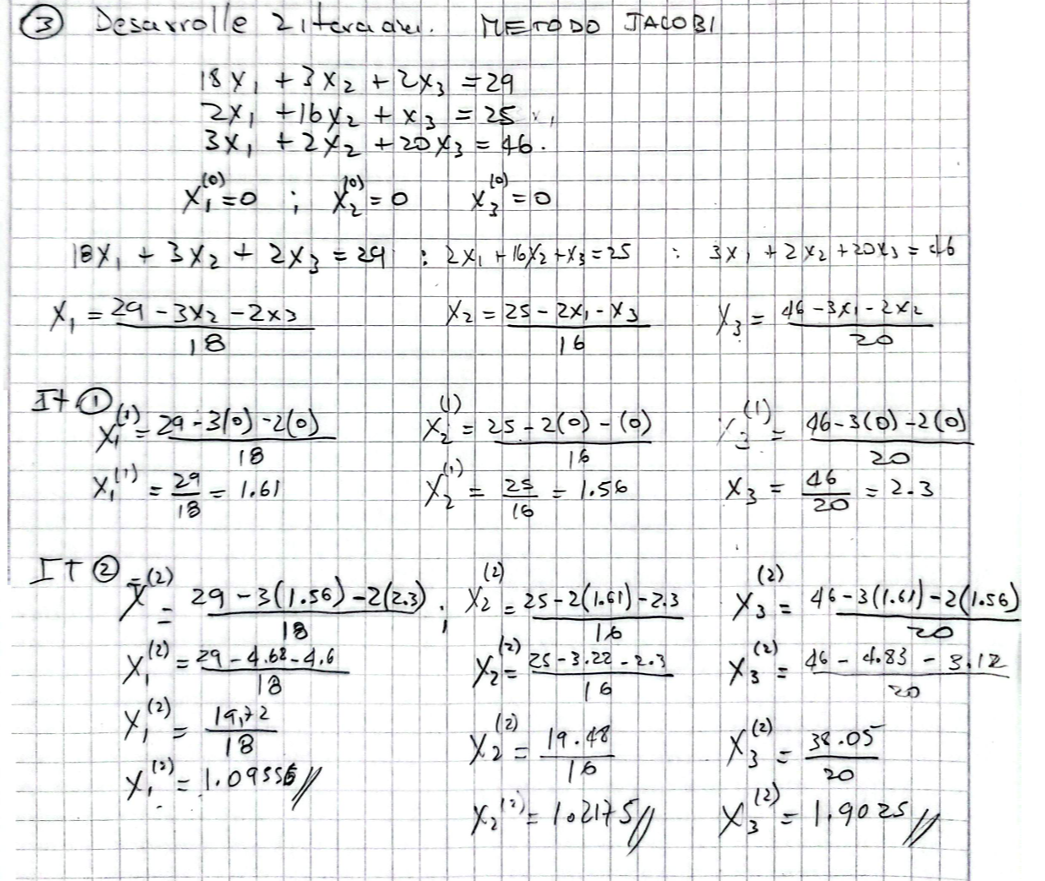 ③ Desarrolle 2 iteracion. METODO JACOBI
18x₁ + 3x₂ + 2x₃ = 29
2x₁ + 16x₂ + x₃ = 25
3x₁ + 2x₂ + 20x₃ = 46.
x₁⁽⁰⁾ = 0 ; x₂⁽⁰⁾ = 0 x₃⁽⁰⁾ = 0
18x₁ + 3x₂ + 2x₃ = 29 : 2x₁ + 16x₂ + x₃ = 25 : 3x₁ + 2x₂ + 20x₃ = 46
x₁ = (29 - 3x₂ - 2x₃)/18 x₂ = (25 - 2x₁ - x₃)/16 x₃ = (46 - 3x₁ - 2x₂)/20
It ①
x₁⁽¹⁾ = (29 - 3(0) - 2(0))/18 x₂⁽¹⁾ = (25 - 2(0) - (0))/16 x₃⁽¹⁾ = (46 - 3(0) - 2(0))/20
x₁⁽¹⁾ = 29/18 = 1.61 x₂⁽¹⁾ = 25/16 = 1.56 x₃ = 46/20 = 2.3
IT ②
x⁽²⁾ = (29 - 3(1.56) - 2(2.3))/18 ; x₂⁽²⁾ = (25 - 2(1.61) - 2.3)/16 x₃⁽²⁾ = (46 - 3(1.61) - 2(1.56))/20
x₁⁽²⁾ = (29 - 4.68 - 4.6)/18 x₂⁽²⁾ = (25 - 3.22 - 2.3)/16 x₃⁽²⁾ = (46 - 4.83 - 3.12)/20
x₁⁽²⁾ = 19,72/18 x₂⁽²⁾ = 19.48/16 x₃⁽²⁾ = 38.05/20
x₁⁽²⁾ = 1.09556// x₂⁽²⁾ = 1.2175// x₃⁽²⁾ = 1.9025//